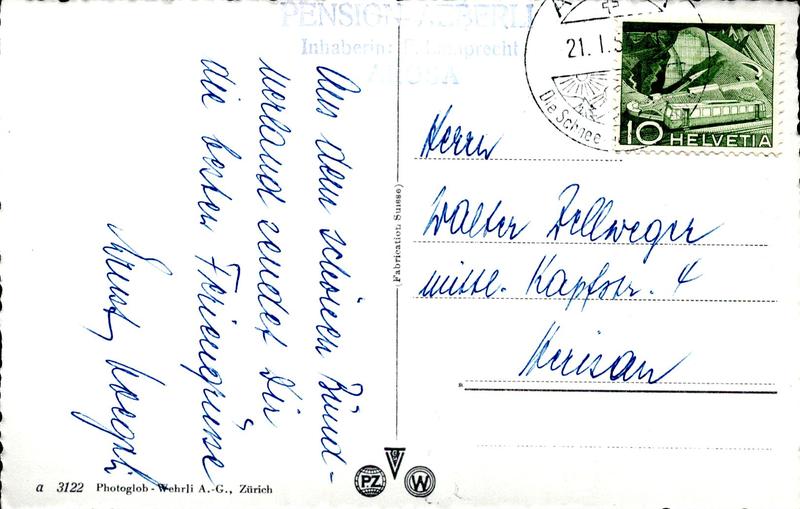 PENSION AEBERLI
Inhaberin:
AROSA
21. I. 5
Die Schnee
10 HELVETIA
Aus dem schönen Bünd-
nerland sendet Dir
die besten Feriengrüsse
Ernst
Herrn
Walter Zellweger
mittl. Kapfstr. 4
Herisau
(Fabrication Suisse)
a 3122 Photoglob-Wehrli A.-G., Zürich
PZ
W